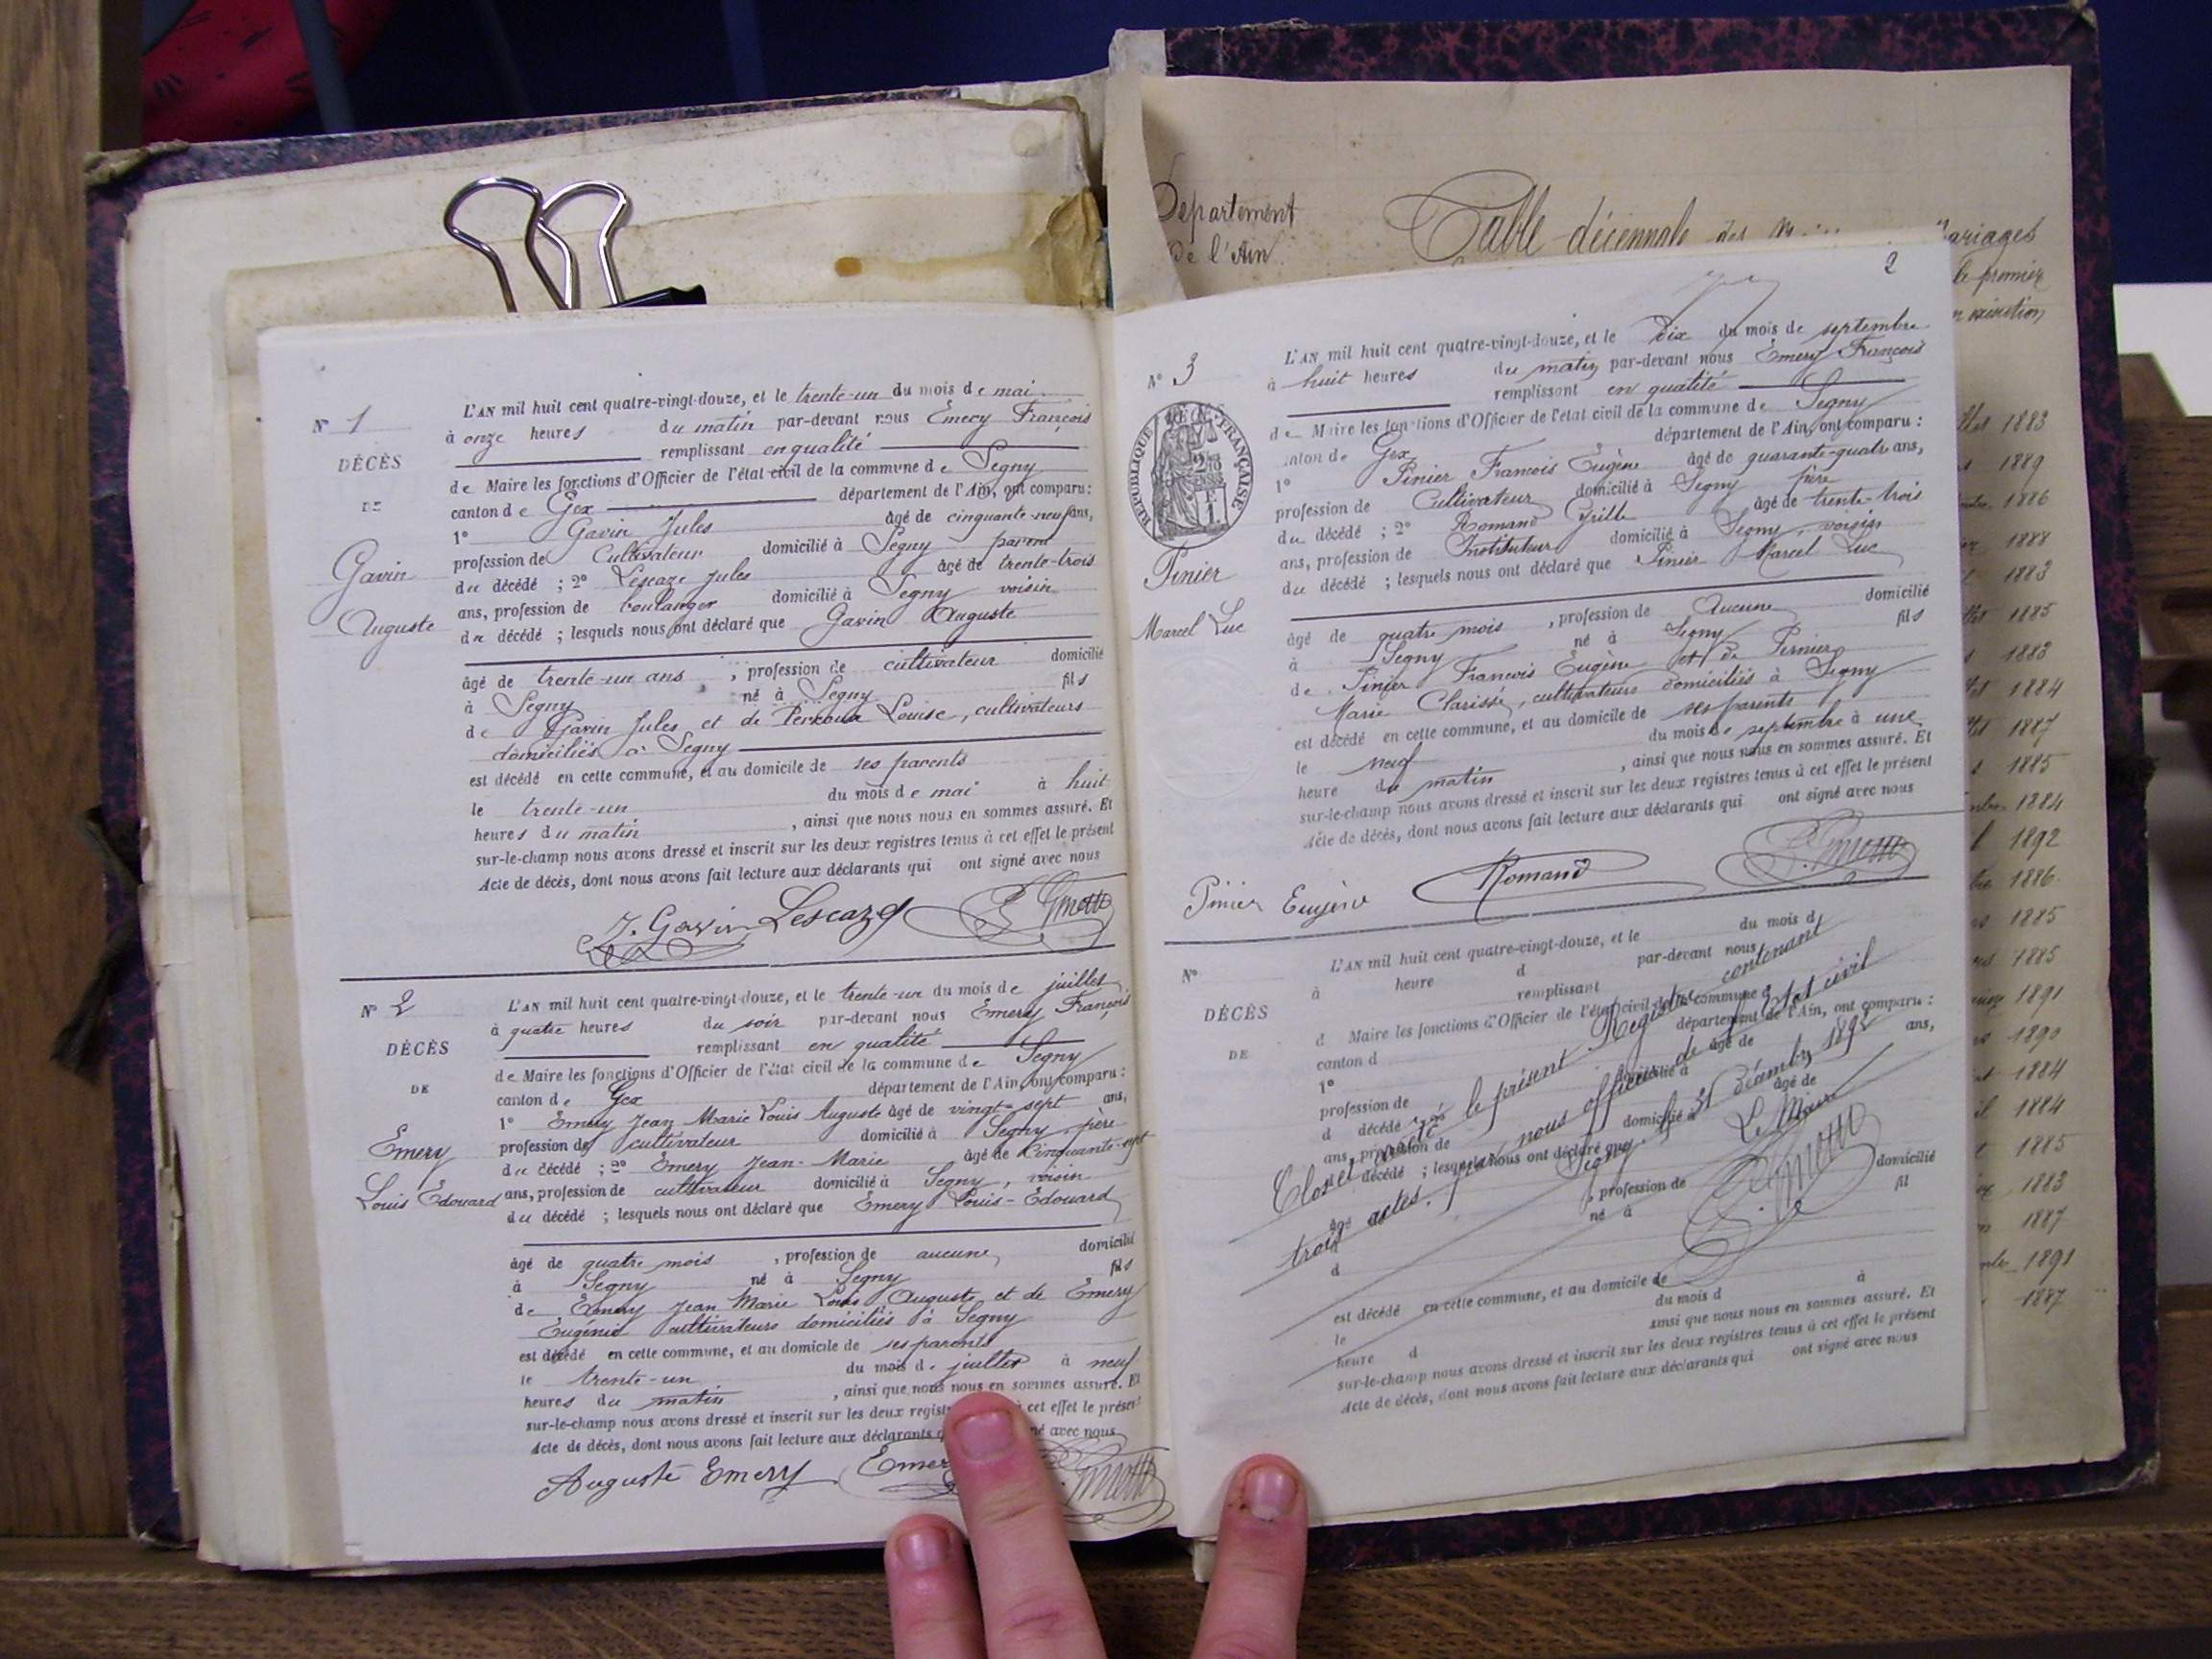 N° 1
DÉCÈS
DE
Gavin
Auguste
L'AN mil huit cent quatre-vingt-douze, et le trente-un du mois de mai
à onze heures du matin par-devant nous Emery François
remplissant en qualité
de Maire les fonctions d'Officier de l'état civil de la commune de Segny
canton de Gex département de l'Ain, ont comparu :
1° Gavin Jules âgé de cinquante-neuf ans,
profession de Cultivateur domicilié à Segny parent
du décédé ; 2° Lescaze Jules âgé de trente-trois
ans, profession de boulanger domicilié à Segny voisin
du décédé ; lesquels nous ont déclaré que Gavin Auguste
âgé de trente-un ans , profession de cultivateur domicilié
à Segny né à Segny fils
de Gavin Jules et de Louise, cultivateurs
domiciliés à Segny
est décédé en cette commune, et au domicile de ses parents
le trente-un du mois de mai à huit
heures du matin , ainsi que nous nous en sommes assuré. Et
sur-le-champ nous avons dressé et inscrit sur les deux registres tenus à cet effet le présent
Acte de décès, dont nous avons fait lecture aux déclarants qui ont signé avec nous
J. Gavin Lescaze
N° 2
DÉCÈS
DE
Emery
Louis Édouard
L'AN mil huit cent quatre-vingt-douze, et le trente-un du mois de juillet
à quatre heures du soir par-devant nous Emery François
remplissant en qualité
de Maire les fonctions d'Officier de l'état civil de la commune de Segny
canton de Gex département de l'Ain, ont comparu :
1° Emery Jean Marie Louis Auguste âgé de vingt-sept ans,
profession de cultivateur domicilié à Segny, père
du décédé ; 2° Emery Jean-Marie âgé de Cinquante-sept
ans, profession de cultivateur domicilié à Segny, voisin
du décédé ; lesquels nous ont déclaré que Emery Louis-Edouard
âgé de quatre mois , profession de aucune domicilié
à Segny né à Segny fils
de Emery Jean Marie Louis Auguste et de Emery
Eugénie cultivateurs domiciliés à Segny
est décédé en cette commune, et au domicile de ses parents
le trente-un du mois de juillet à neuf
heures du matin , ainsi que nous nous en sommes assuré. Et
sur-le-champ nous avons dressé et inscrit sur les deux à cet effet le présent
Acte de décès, dont nous avons fait lecture aux déclarants avec nous
Auguste Emery
Département
de l'Ain
Table décennale des
le premier
2
N° 3
RÉPUBLIQUE FRANÇAISE
Pinier
Marcel Luc
L'AN mil huit cent quatre-vingt-douze, et le Dix du mois de septembre
à huit heures du matin par-devant nous Emery François
remplissant en qualité
de Maire les fonctions d'Officier de l'état civil de la commune de Segny
canton de Gex département de l'Ain, ont comparu :
1° Pinier François Eugène âgé de quarante-quatre ans,
profession de Cultivateur domicilié à Segny père
du décédé ; 2° Romand âgé de trente-trois
ans, profession de Instituteur domicilié à Segny, voisin
du décédé ; lesquels nous ont déclaré que Pinier Marcel Luc
âgé de quatre mois , profession de Aucune domicilié
à Segny né à Segny fils
de Pinier François Eugène et de Pernier
Marie Clarisse, cultivateurs domiciliés à Segny
est décédé en cette commune, et au domicile de ses parents
le neuf du mois de septembre à une
heure du matin , ainsi que nous nous en sommes assuré. Et
sur-le-champ nous avons dressé et inscrit sur les deux registres tenus à cet effet le présent
Acte de décès, dont nous avons fait lecture aux déclarants qui ont signé avec nous
Pinier Eugène Romand
N°
DÉCÈS
DE
L'AN mil huit cent quatre-vingt-douze, et le du mois d
à heure d par-devant nous
remplissant
d Maire les fonctions d'Officier de l'état civil de la commune d
canton d département de l'Ain, ont comparu :
1° âgé de ans,
profession de domicilié à
d décédé ; 2° âgé de
ans, profession de domicilié à
d décédé ; lesquels nous ont déclaré que
âgé d , profession de domicilié
à né à fil
d
est décédé en cette commune, et au domicile de
le du mois d à
heure d ainsi que nous nous en sommes assuré. Et
sur-le-champ nous avons dressé et inscrit sur les deux registres tenus à cet effet le présent
Acte de décès, dont nous avons fait lecture aux déclarants qui ont signé avec nous
Clos et arrêté le présent Registre contenant
trois actes, par nous officier de l'état civil
Segny le 31 décembre 1892
Le Maire
1883
1889
1886
1888
1883
1885
1883
1884
1887
1885
1884
1892
1886
1885
1885
1891
1890
1884
1884
1885
1883
1887
1891
1887